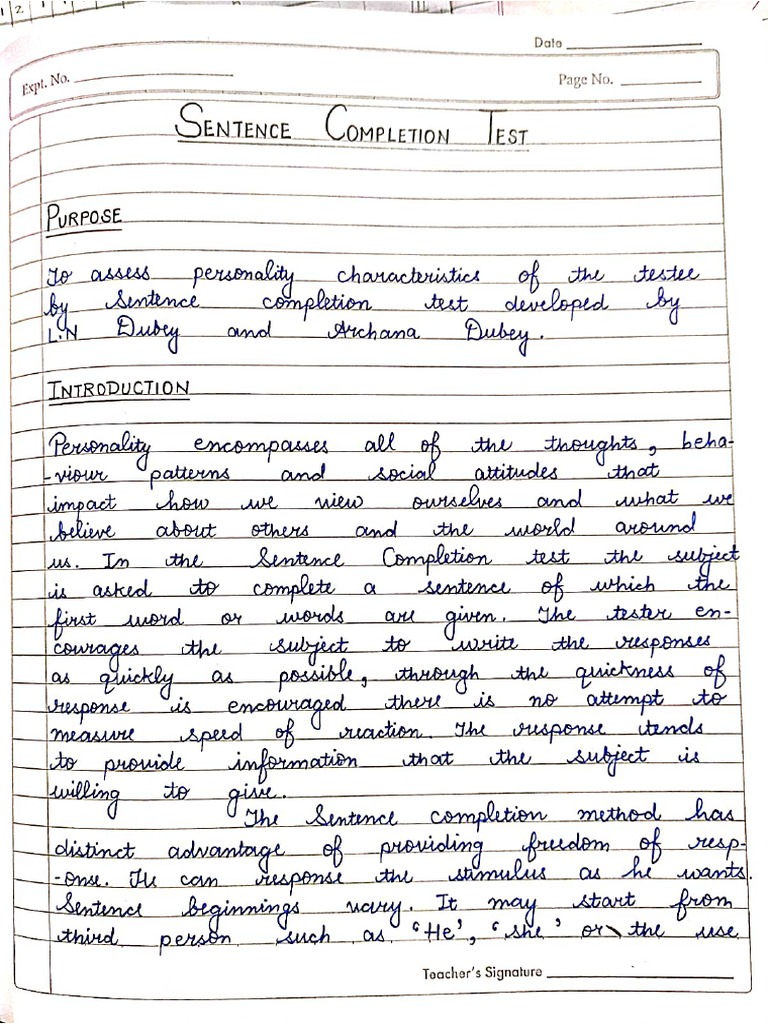 1 2 1
Date
Expt. No.
Page No.
SENTENCE COMPLETION TEST
PURPOSE
To assess personality characteristics of the testee
by Sentence completion test developed by
L.N Dubey and Archana Dubey.
INTRODUCTION
Personality encompasses all of the thoughts, beha-
-viour patterns and social attitudes that
impact how we view ourselves and what we
believe about others and the world around
us. In the Sentence Completion test the subject
is asked to complete a sentence of which the
first word or words are given. The tester en-
courages the subject to write the responses
as quickly as possible, through the quickness of
response is encouraged there is no attempt to
measure speed of reaction. The response tends
to provide information that the subject is
willing to give.
The Sentence completion method has
distinct advantage of providing freedom of resp-
-onse. He can response the stimulus as he wants.
Sentence beginnings vary. It may start from
third person such as 'He', 'she' or the use
Teacher's Signature